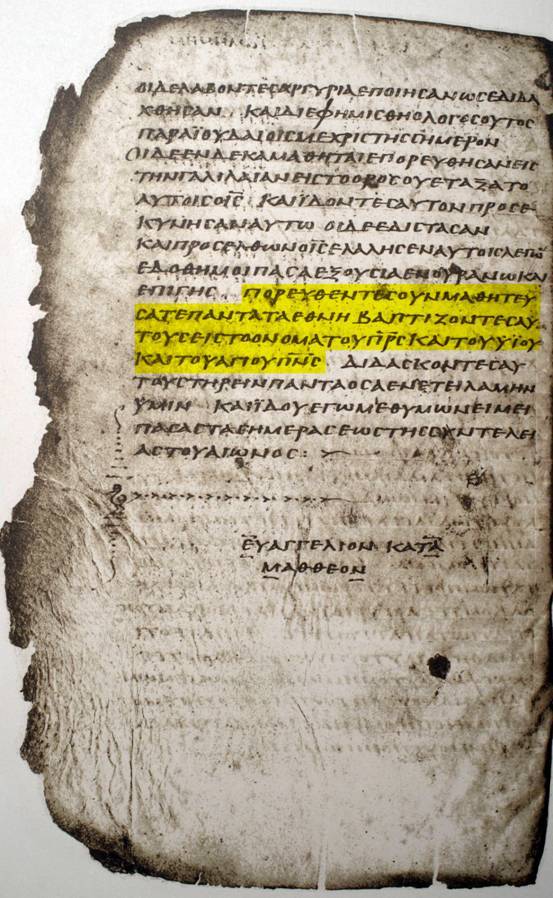 ΟΙΔΕΛΑΒΟΝΤΕϹΑΡΓΥΡΙΑΕΠΟΙΗϹΑΝΩϹΕΔΙΔΑ
ΧΘΗϹΑΝ ΚΑΙΔΙΕΦΗΜΙϹΘΗΟΛΟΓΟϹΟΥΤΟϹ
ΠΑΡΑΪΟΥΔΑΙΟΙϹΜΕΧΡΙΤΗϹϹΗΜΕΡΟΝ
ΟΙΔΕΕΝΔΕΚΑΜΑΘΗΤΑΙΕΠΟΡΕΥΘΗϹΑΝΕΙϹ
ΤΗΝΓΑΛΙΛΑΙΑΝΕΙϹΤΟΟΡΟϹΟΥΕΤΑΞΑΤΟ
ΑΥΤΟΙϹΟΙ̅Ϲ̅ ΚΑΙΪΔΟΝΤΕϹΑΥΤΟΝΠΡΟϹΕ
ΚΥΝΗϹΑΝΑΥΤΩ ΟΙΔΕΕΔΙϹΤΑϹΑΝ
ΚΑΙΠΡΟϹΕΛΘΩΝΟΙ̅Ϲ̅ΕΛΑΛΗϹΕΝΑΥΤΟΙϹΛΕΓΩ̅
ΕΔΟΘΗΜΟΙΠΑϹΑΕΞΟΥϹΙΑΕΝΟΥΡΑΝΩΚΑΙ
ΕΠΙΓΗϹ ΠΟΡΕΥΘΕΝΤΕϹΟΥΝΜΑΘΗΤΕΥ
ϹΑΤΕΠΑΝΤΑΤΑΕΘΝΗ ΒΑΠΤΙΖΟΝΤΕϹΑΥ
ΤΟΥϹΕΙϹΤΟΟΝΟΜΑΤΟΥΠ̅Ρ̅Ϲ̅ΚΑΙΤΟΥΫΙΟΥ
ΚΑΙΤΟΥΑΓΙΟΥΠ̅Ν̅Ϲ̅ ΔΙΔΑϹΚΟΝΤΕϹΑΥ
ΤΟΥϹΤΗΡΕΙΝΠΑΝΤΑΟϹΑΕΝΕΤΕΙΛΑΜΗΝ
ΫΜΙΝ ΚΑΙΪΔΟΥΕΓΩΜΕΘΥΜΩΝΕΙΜΕΙ
ΠΑϹΑϹΤΑϹΗΜΕΡΑϹΕΩϹΤΗϹϹΥΝΤΕΛΕΙ
ΑϹΤΟΥΑΙΩΝΟϹ:
ΕΥΑΓΓΕΛΙΟΝ ΚΑΤΑ
ΜΑΘΘΕΟΝ